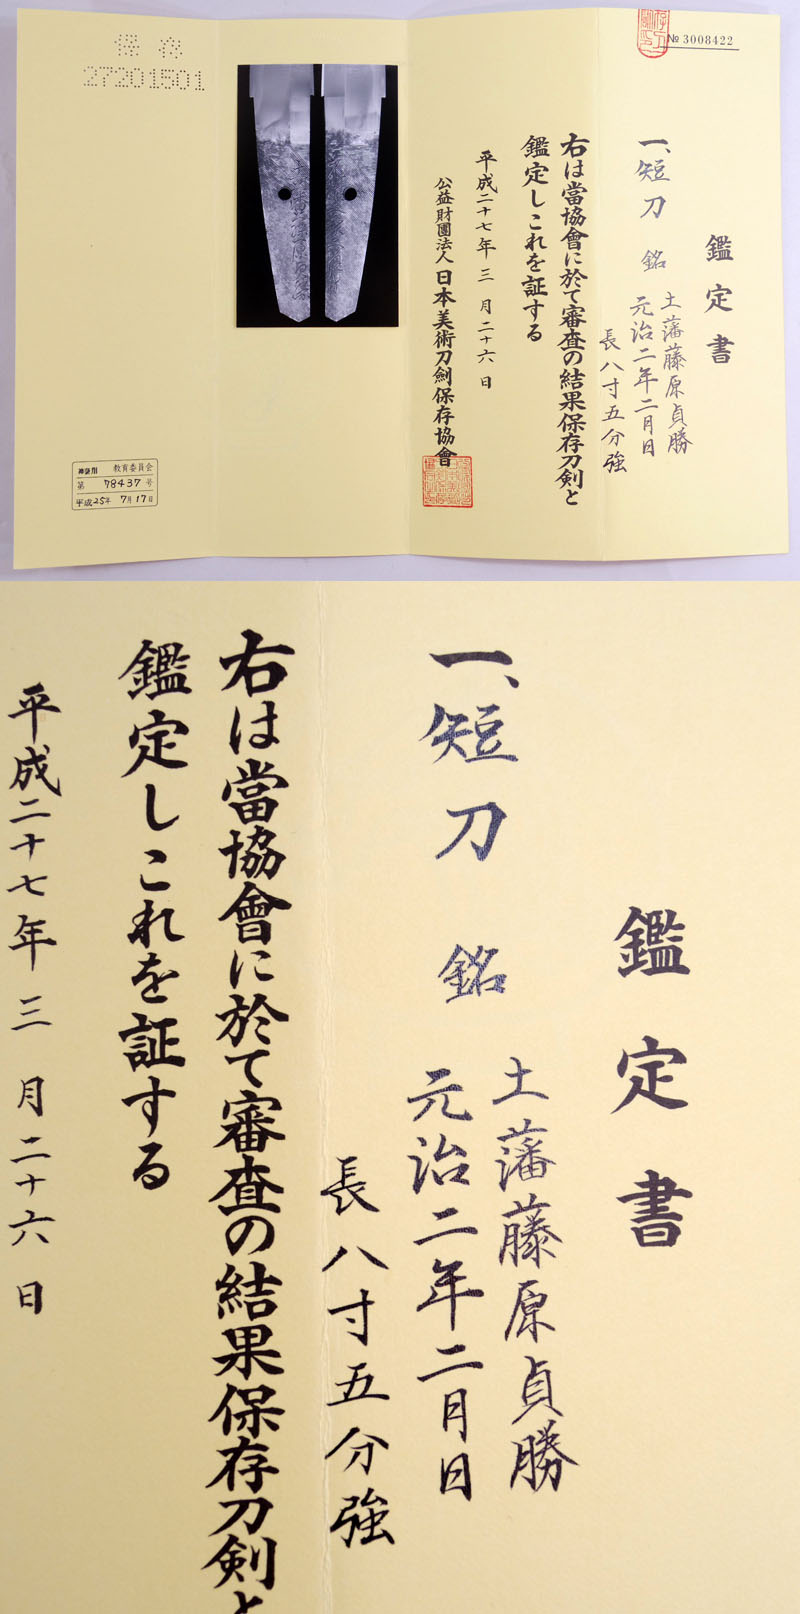 № 3008422
鑑定書
一、短刀 銘 土藩藤原貞勝
元治二年二月日
長八寸五分強
右は當協會に於て審査の結果保存刀剣と
鑑定しこれを証する
平成二十七年三月二十六日
公益財團法人日本美術刀劍保存協會
保存
27201501
神奈川 教育委員会
第 78437 号
平成25年 7月17日
鑑定書
一、短刀 銘 土藩藤原貞勝
元治二年二月日
長八寸五分強
右は當協會に於て審査の結果保存刀剣と
鑑定しこれを証する
平成二十七年三月二十六日